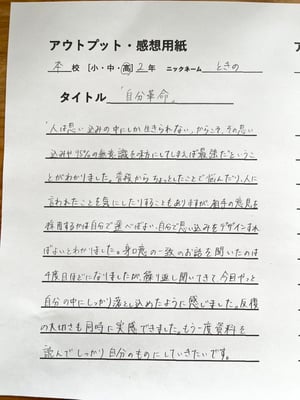 アウトプット・感想用紙
本 校 [小・中・高] 2 年 ニックネーム ときの
タイトル 「自分革命」
「人は思い込みの中にしか生きられない」からこそ、その思い
込みや95%の無意識を味方にしてしまえば最強だというこ
とがわかりました。普段から ちょっとしたことで悩んだり、人に
言われたことを気にしたりすることもありますが、相手の意見を
採用するかは自分で選べばよい、自分で思い込みをデザインすれ
ばよいとわかりました。身口意の一致のお話を聞いたのは
4度目ほどになりましたが、繰り返し聞いてきて、今日やっと
自分の中にしっかり落とし込めたように感じました。反復
の大切さも同時に実感できました。もう一度資料を
読んでしっかり自分のものにしていきたいです。